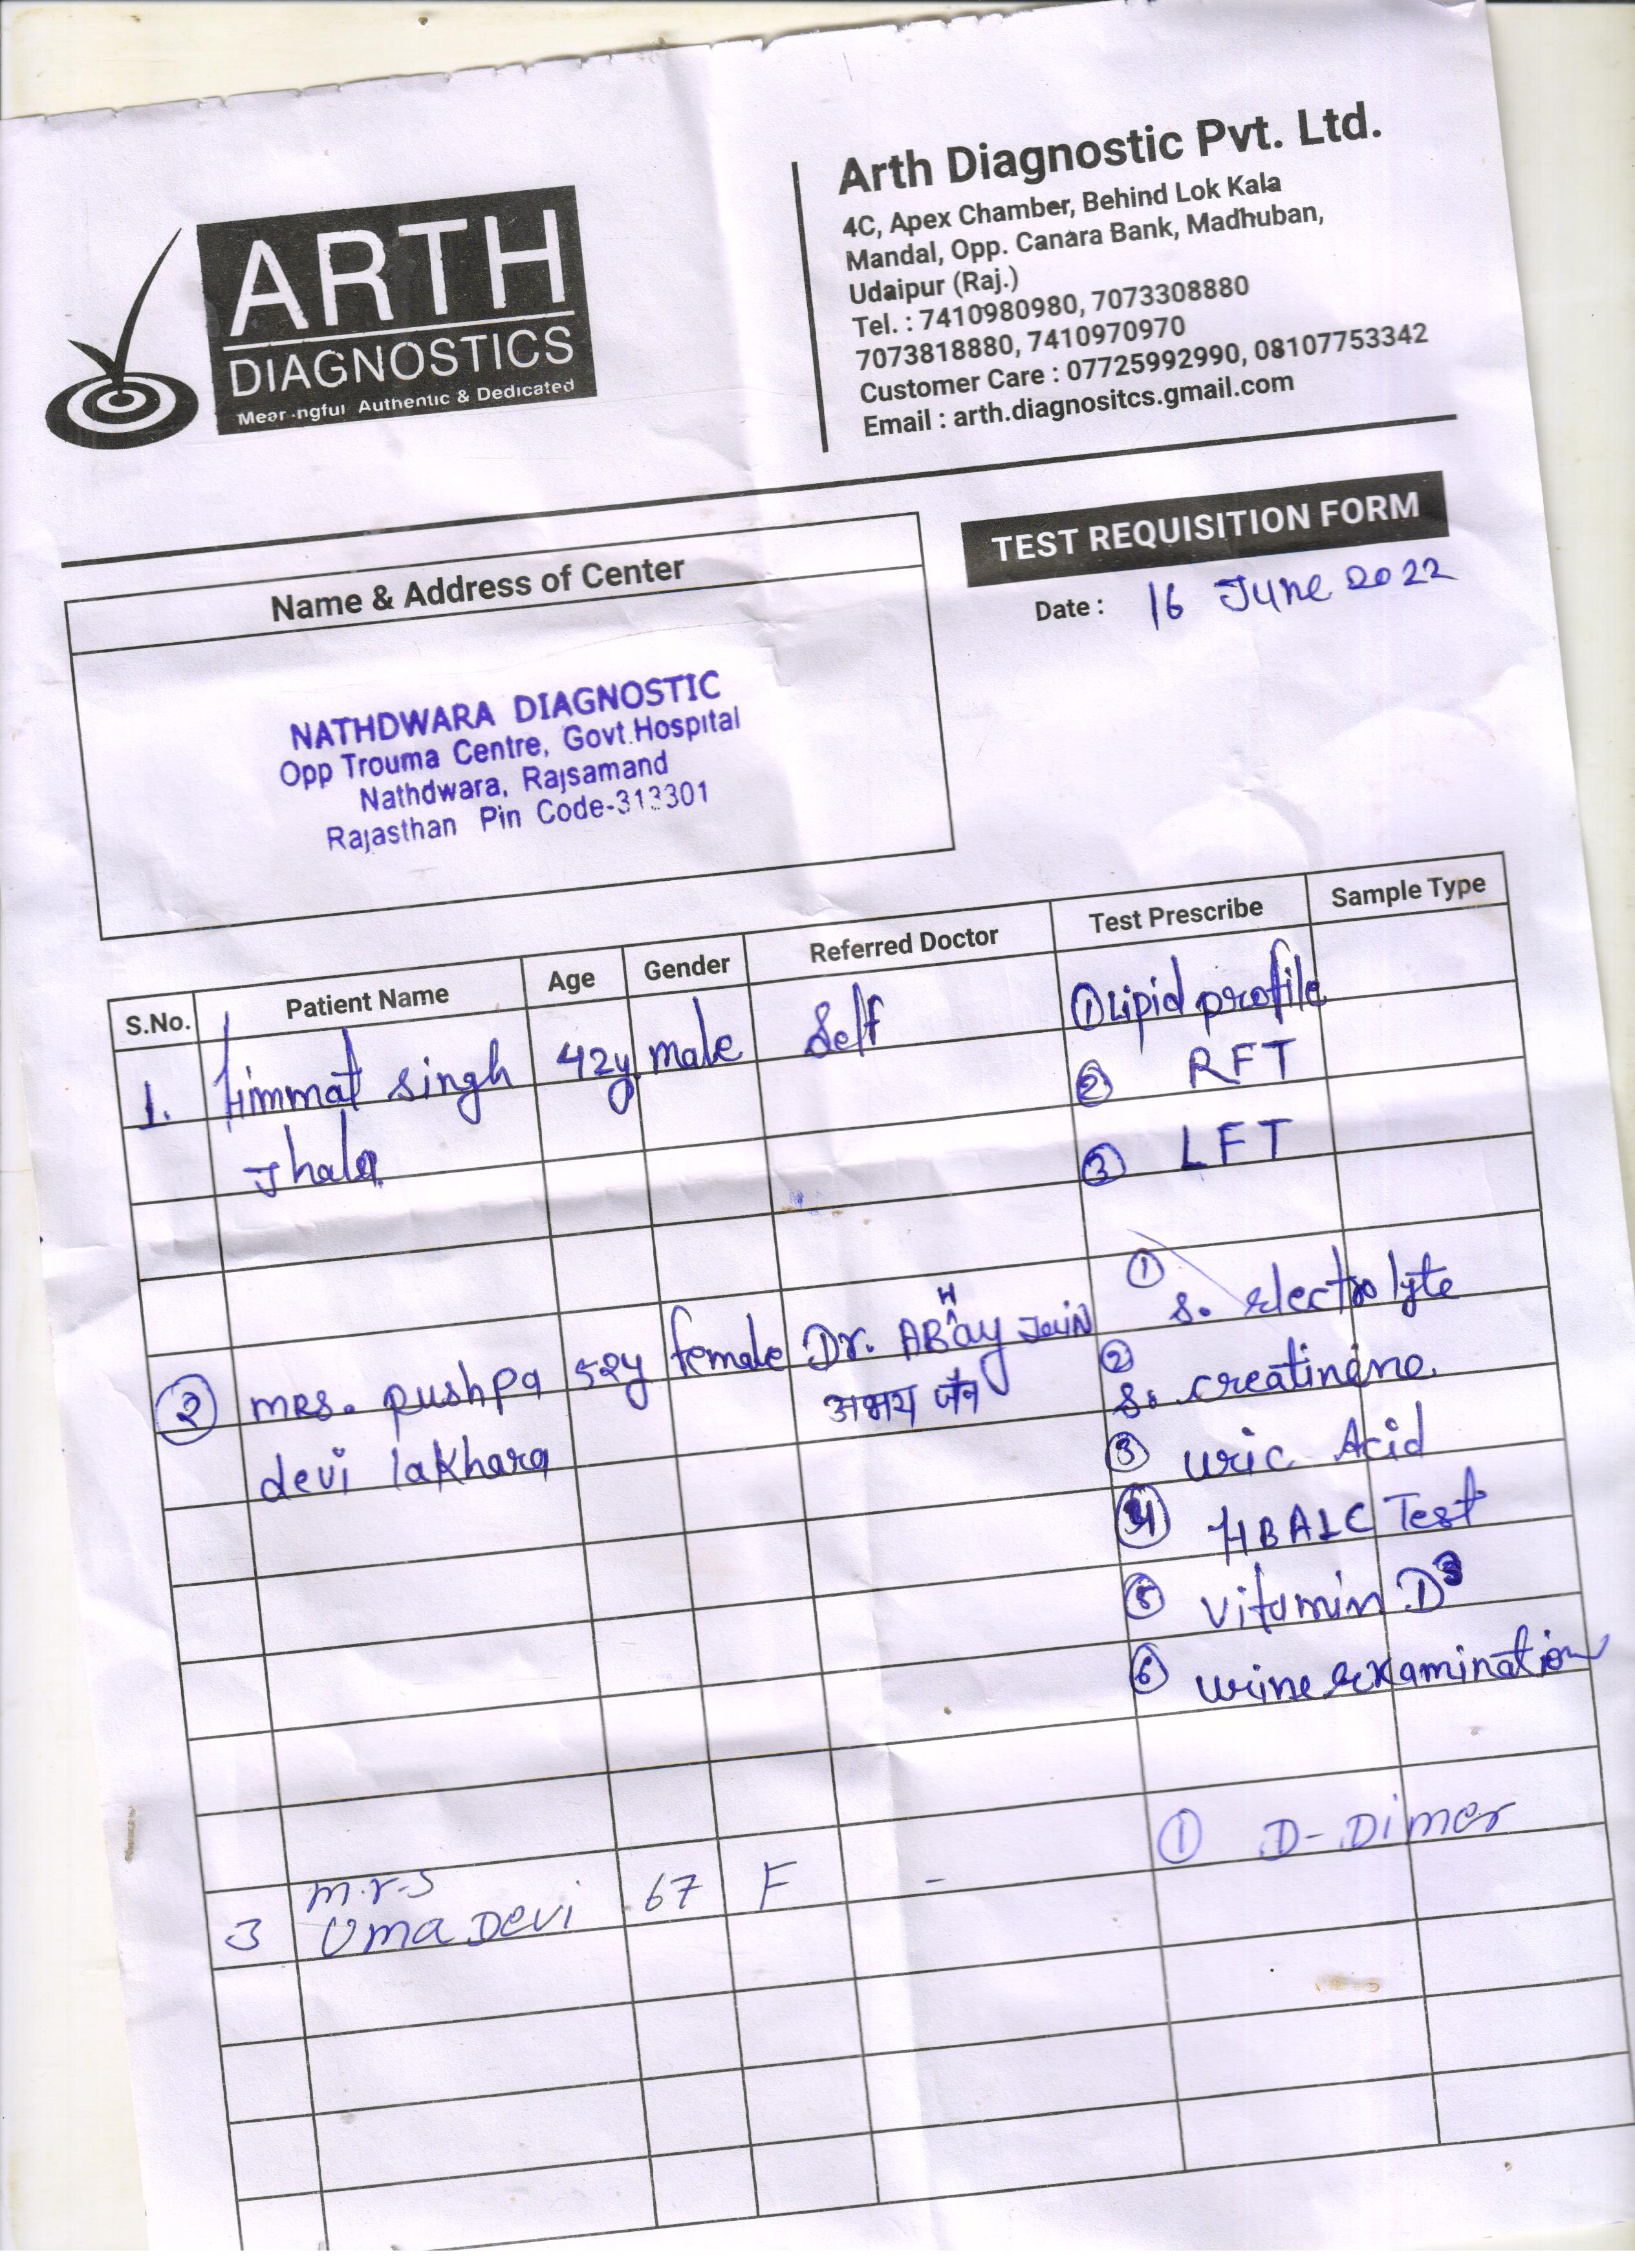 ARTH
DIAGNOSTICS
Mear ngful Authentic & Dedicated
Arth Diagnostic Pvt. Ltd.
4C, Apex Chamber, Behind Lok Kala
Mandal, Opp. Canara Bank, Madhuban,
Udaipur (Raj.)
Tel. : 7410980980, 7073308880
7073818880, 7410970970
Customer Care : 07725992990, 08107753342
Email : arth.diagnositcs.gmail.com
TEST REQUISITION FORM
Date : 16 June 2022
Name & Address of Center
NATHDWARA DIAGNOSTIC
Opp Trouma Centre, Govt.Hospital
Nathdwara, Rajsamand
Rajasthan Pin Code-313301
S.No. Patient Name Age Gender Referred Doctor Test Prescribe Sample Type
1. Himmat singh 42y. male Self ① Lipid profile
② RFT
Jhala ③ LFT
① S. electrolyte
② mrs. pushpa 52y female Dr. ABHay Jain ② S. creatinine
devi lakhara अभय जैन
③ uric Acid
④ HBA1C Test
⑤ vitamin D3
⑥ urine examination
3 m.r.s Uma Devi 67 F - ① D-Dimer